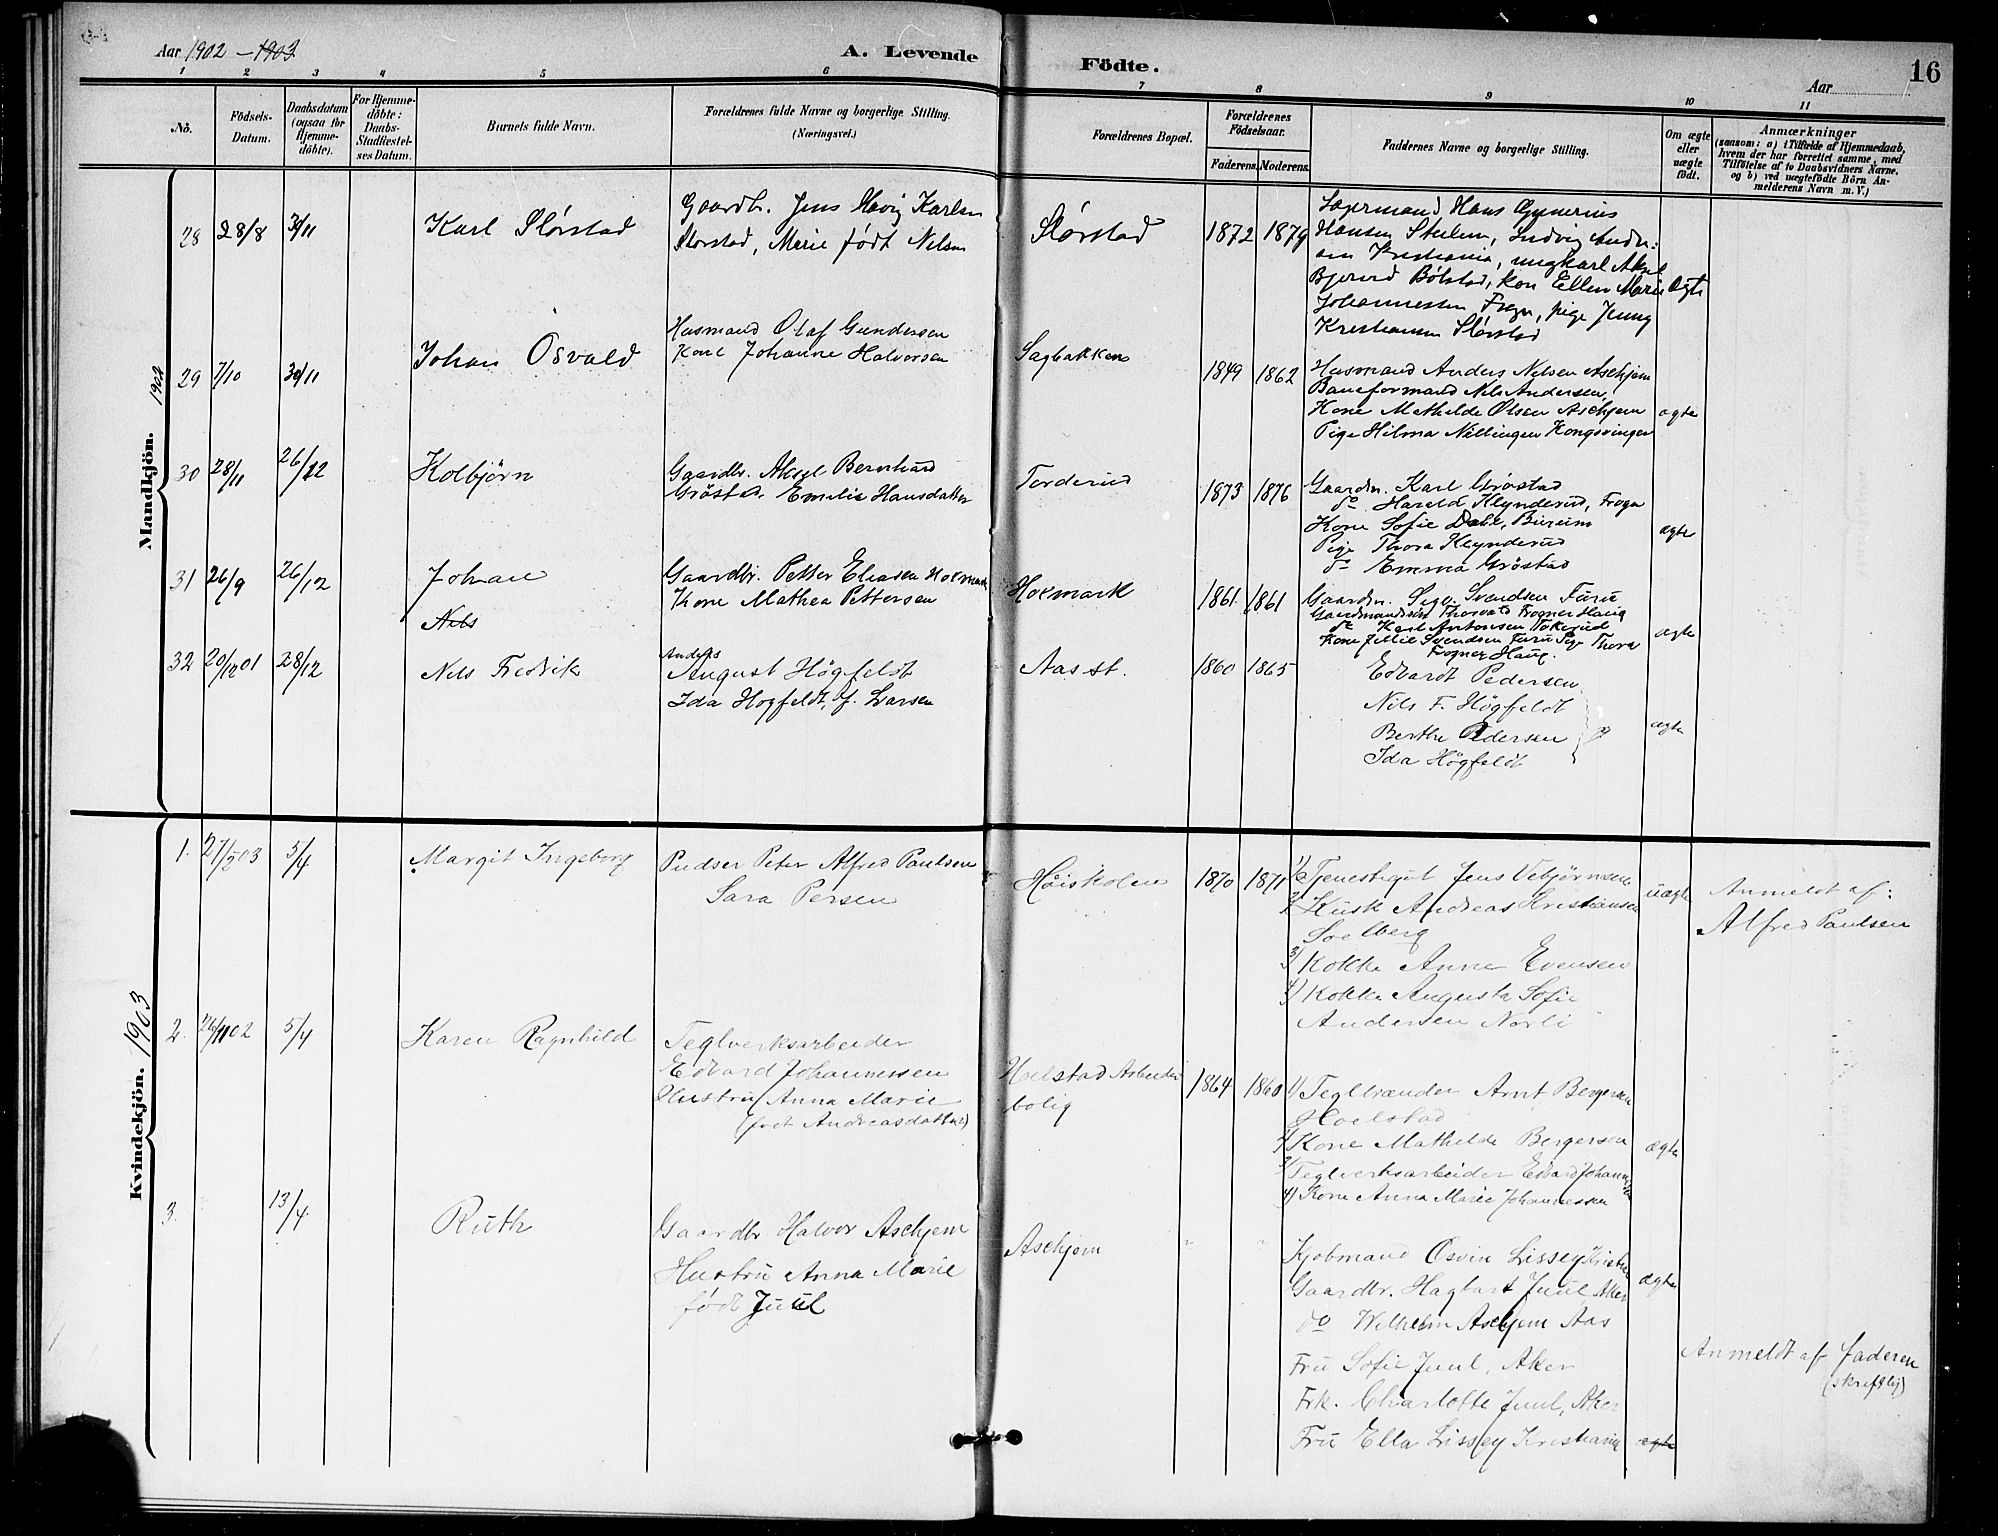 Aar 1902 – 1903
A. Levende Födte.
Aar
16
1 2 3 4 5 6 7 8 9 10 11
No.
Födsels-Datum.
Daabsdatum (ogsaa for Hjemme-döbte).
For Hjemme-döbte: Daabs-Stadfæstel-ses Datum.
Barnets fulde Navn.
Forældrenes fulde Navne og borgerlige Stilling.
(Næringsvei.)
Forældrenes Bopæl.
Forældrenes Födselsaar.
Faderens. Moderens.
Faddernes Navne og borgerlige Stilling.
Om ægte eller uægte födt.
Anmærkninger
(saasom: a) i Tilfælde af Hjemmedaab,
hvem der har forrettet samme, med
Tilföielse af to Daabsvidners Navne.
og b) ved uægtefödte Börn An-
melderens Navn m. V.)
Mandkjön. 1902
28 28/8 30/11 Karl Störstad
Gaardbr. Jens Hævig Karlsen
Störstad, Marie født Nilsen
Störstad 1872 1879
Hans Gynerius
Hansen, Ludvig Andr:
sen Kristiania, ungkarl Aksel
Bjererd Bölstad, kone Ellen Marie
Johannessen Frogn, pige Jenny
Kristiansen Störstad
Ægte
29 7/10 30/11 Johan Osvald
Husmand Olaf Gundersen
Kone Johanne Halvorsen
Sagbakken 1849 1862
Husmand Anders Nilsen Aschjem
Baneformand Nils Andersen,
Kone Mathilde Olsen Aschjem
Pige Hilma Nillingen Kongsvinger
ægte
30 28/11 26/12 Kolbjörn
Gaardbr. Aksel Bernhard
Gröstad. Emilie Hansdatter
Torderud 1873 1876
Gaardbr. Karl Gröstad
do Harald Klynderud, Frogn
Kone Sofie Dahl, Bureim
Pige Thora Klynderud
do Emma Gröstad
ægte
31 26/9 26/12 Johan
Gaardbr. Petter Eliasen Holmark
Kone Mathea Pettersen
Holmark 1861 1861
Gaardbr. Sigv. Svendsen Furu
Gaardmandssøn Thorvald Frogner Haug
do Karl Antonsen Tokerud
Kone Jellie Svendsen Furu Pige Thora
Frogner Haug.
ægte
Nils
32 20/12 01 28/12 Nils Fredrik
Anders
August Högfeldt
Ida Hogfeldt, f. Larsen
Aas st. 1860 1865
Edvardt Pedersen
Nils F. Högfeldt
Berthe Pedersen
Ida Högfeldt
ægte
Kvindekjön. 1903
1. 03 5/4 Margit Ingeborg
Pudser Peter Alfred Paulsen
Sara Persen
Höiskolen 1870 1871
1) Tjenestegut Jens Vebjörnsen
2) Kusk Andreas Kristiansen
Solberg
3) Kokke Anne Evensen
4) Kokke Augusta Sofie
Andersen Norli
uægte
Anmeldt af:
Alfred Paulsen
2. 26/11 02 5/4 Karen Ragnhild
Teglverksarbeider
Edvard Johannessen
Hustru Anna Marie
(født Andreasdatter)
Hoelstad Arbeider
bolig
1864 1860
1) Teglbrænder Arnt Bergersen
Hoelstad
2) Kone Mathilde Bergersen
3) Teglverksarbeider Edvard Johannessen
4) Kone Anna Marie Johannessen
ægte
3. 13/4 Ruth
Gaardbr Halvor Aschjem
Hustru Anna Marie
født Juul
Aschjem " "
Kjøbmand Osvin Lissey Kristia
Gaardbr. Hagbart Juul, Aker
do Wilhelm Aschjem Aas
Fru Sofie Juul, Aker
Frk. Charlotte Juul, Aker
Fru Ella Lissey Kristiania
ægte
ægte
Anmeldt af faderen
(skriftlig)